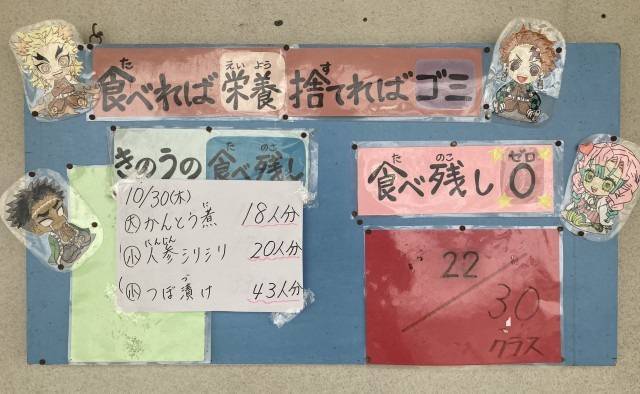 食べれば栄養 捨てればゴミ
た えいよう す
きのうの食べ残し
た のこ
10/30(木)
大 かんとう煮 18人分
に
小 人参シリシリ 20人分
にんじん
小 つぼ漬け 43人分
づ
食べ残し0
た のこ ゼロ
22
30
クラス